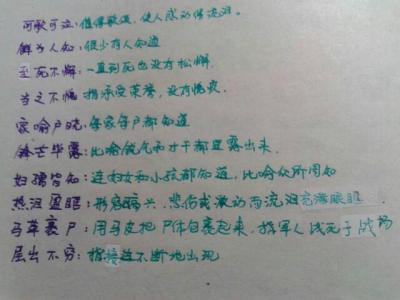 可歌可泣：值得歌颂，使人感动得流泪。
鲜为人知：很少有人知道
至死不懈：一直到死也没有松懈.
当之不愧：指承受荣誉，没有愧疚.
家喻户晓：每家每户都知道
锋芒毕露：比喻锐气和才干都显露出来.
妇孺皆知：连妇女和小孩都知道，比喻众所周知
热泪盈眶：形容高兴，悲伤或激动而流泪充满眼眶
马革裹尸：用马皮把尸体包裹起来，指军人战死于战场
层出不穷：指接连不断地出现